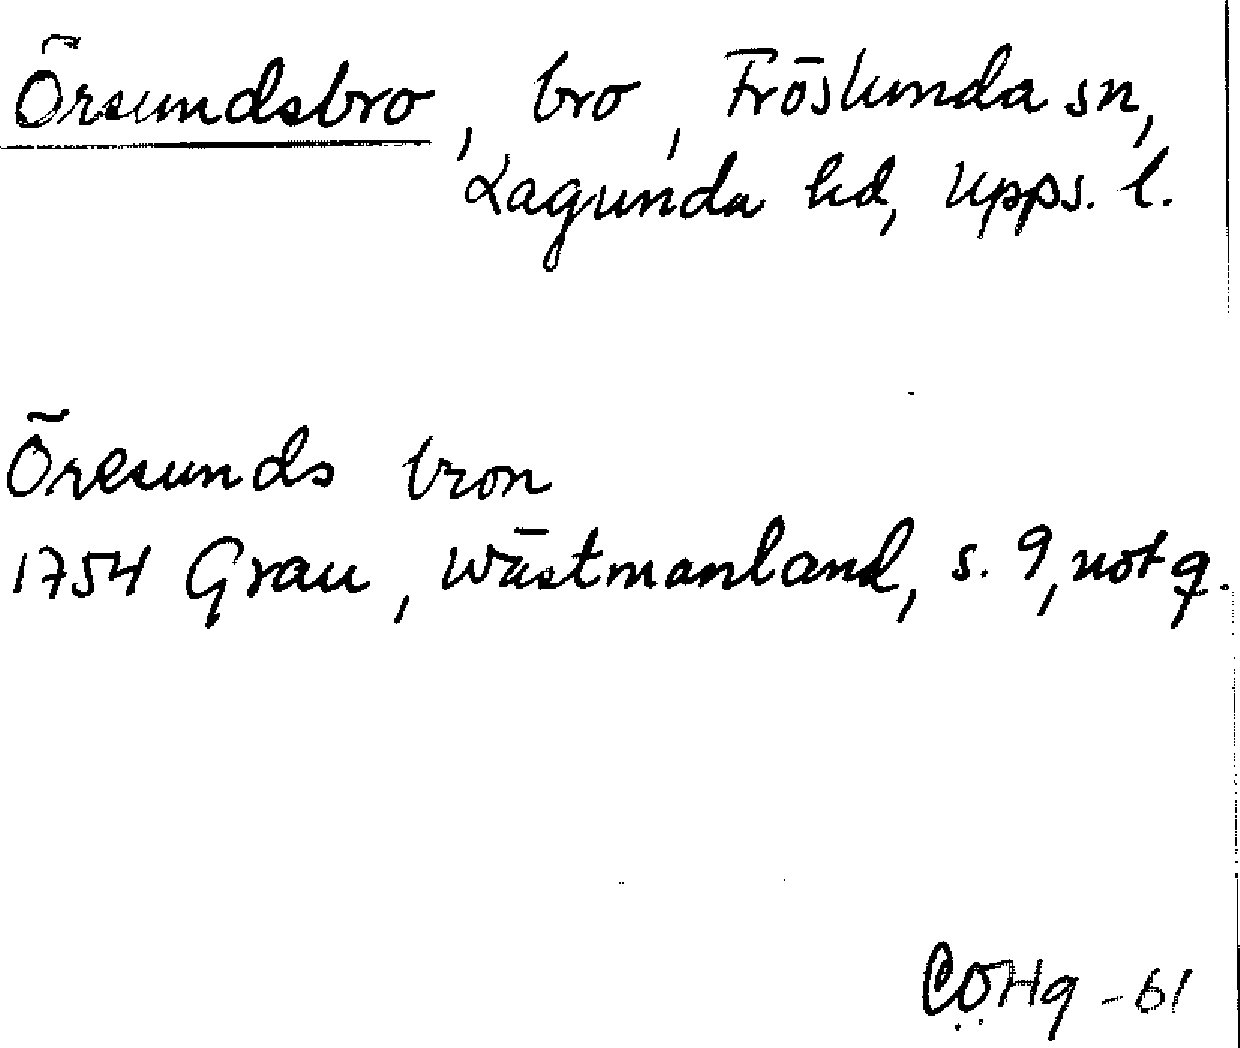 Örsundsbro, bro, Fröslunda sn,
Lagunda hd, Upps. l.
Öresunds bron
1754 Grau, Wästmanland, s. 9, not q.
COHg -61